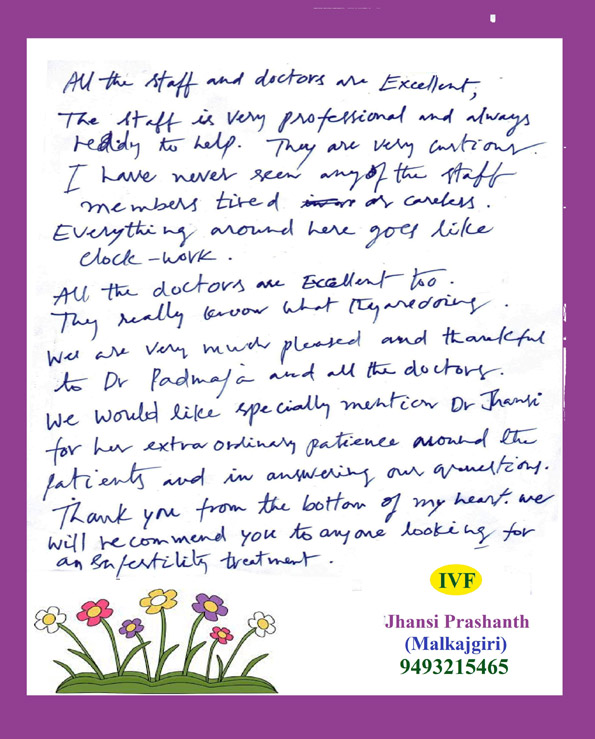 All the staff and doctors are Excellent,
The staff is very professional and always
readdy to help. They are very cautious.
I have never seen any of the staff
members tired or careless.
Everything around here goes like
clock-work.
All the doctors are Excellent too.
They really know what they are doing.
We are very much pleased and thankful
to Dr Padmaja and all the doctors.
We would like specially mention Dr Jhansi
for her extra ordinary patience around the
patients and in answering our questions.
Thank you from the bottom of my heart. we
will recommend you to anyone looking for
an Infertility treatment.
IVF
Jhansi Prashanth
(Malkajgiri)
9493215465